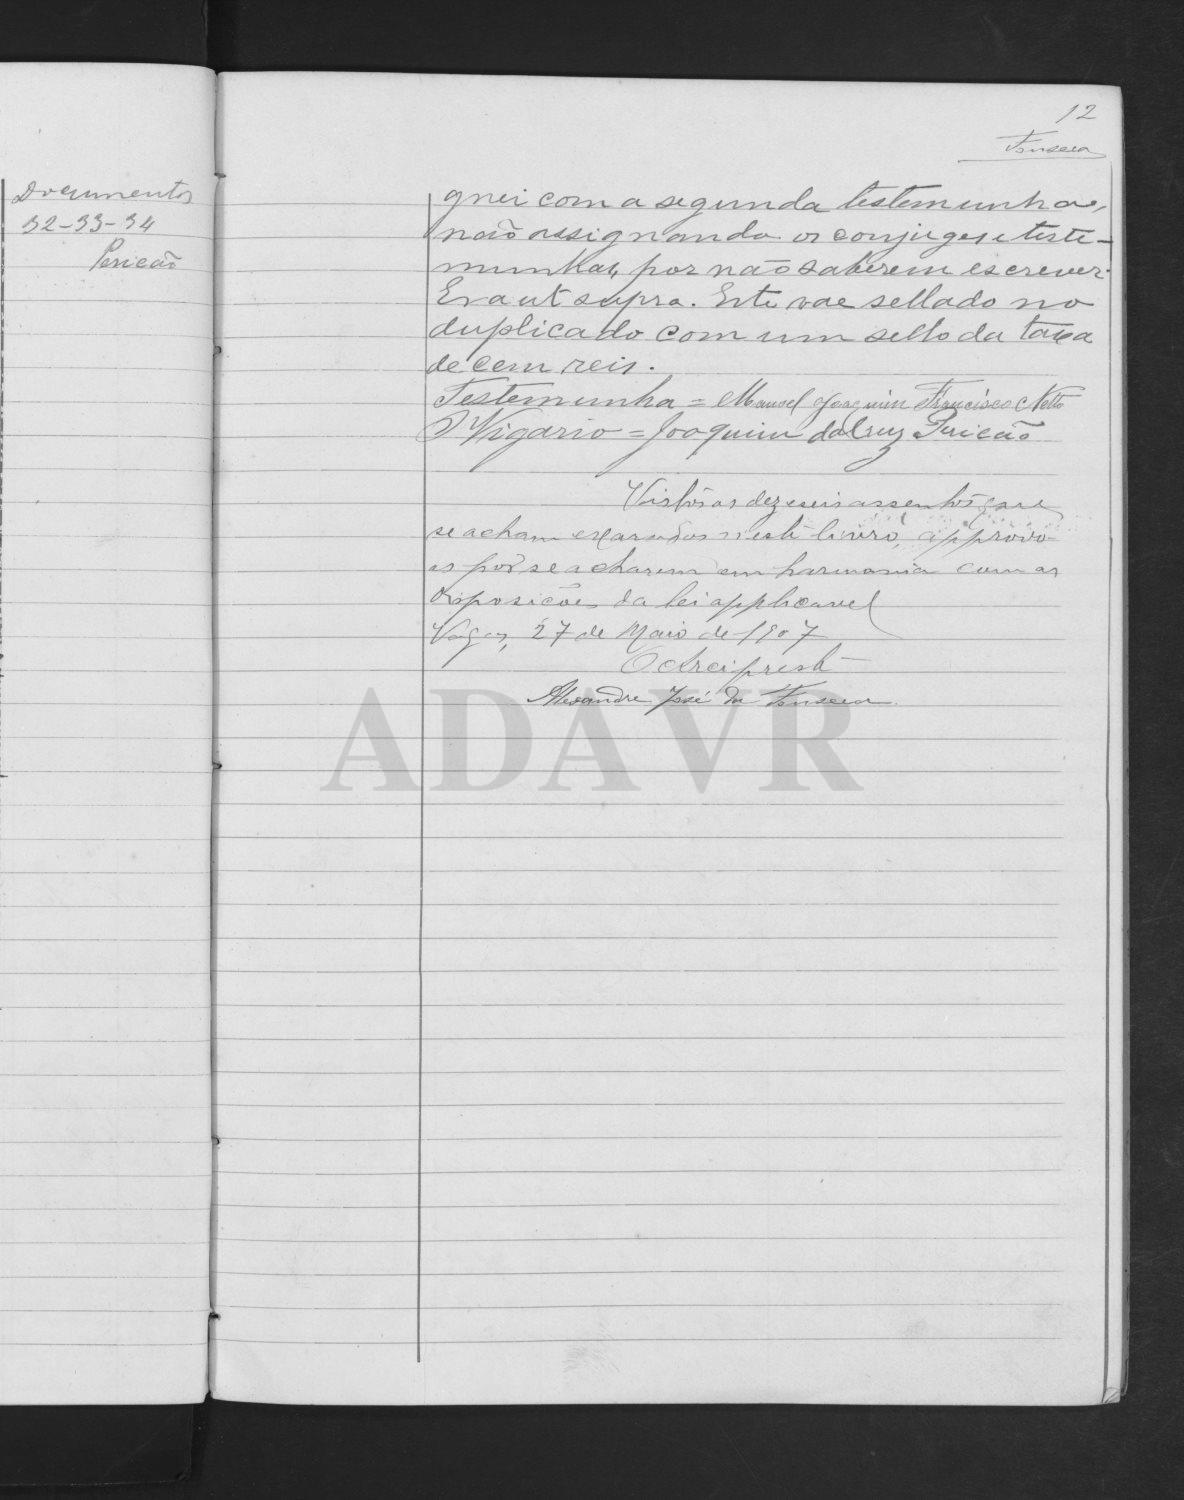 12
Fonseca
Documentos
32-33-34
Pericão
gnei com a segunda testemunha,
não assignando os conjuges e teste-
munhas, por não saberem escrever.
Era ut supra. Este vae sellado no
duplicado com um sello da taxa
de cem reis.
Testemunha = Manoel Joaquim Francisco Netto
O Vigario = Joaquim da Cruz Pericão
Vistos os dezeseis assentos que
se acham exarados n'este livro, approvo-
os por se acharem em harmonia com as
disposicões da lei applicavel
Vagos, 27 de Maio de 1907
O Arcipreste
Alexandre José da Fonseca.
ADAVR